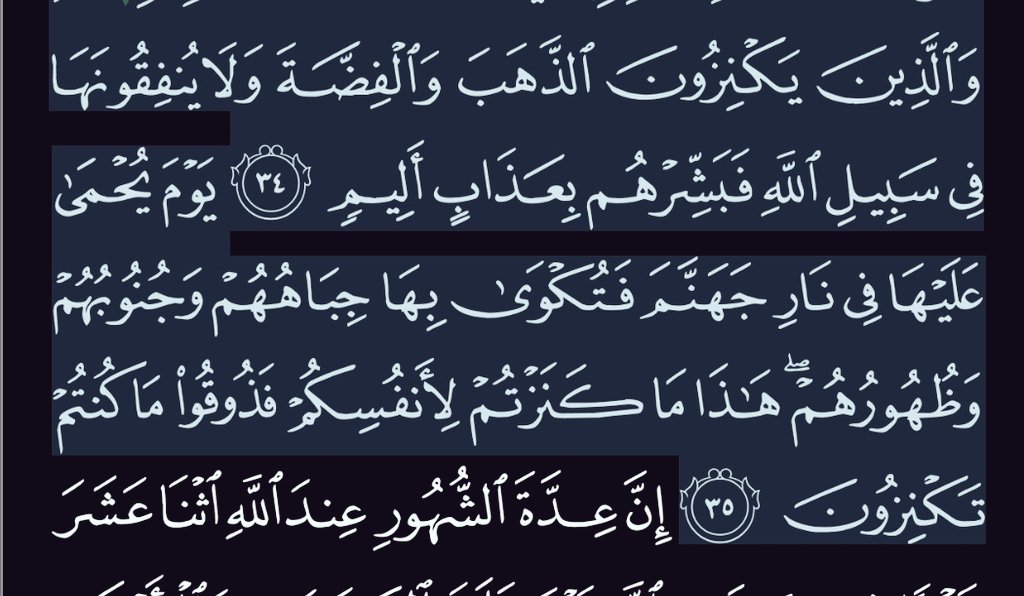 وَٱلَّذِينَ يَكْنِزُونَ ٱلذَّهَبَ وَٱلْفِضَّةَ وَلَا يُنفِقُونَهَا
فِى سَبِيلِ ٱللَّهِ فَبَشِّرْهُم بِعَذَابٍ أَلِيمٍ ٣٤ يَوْمَ يُحْمَىٰ
عَلَيْهَا فِى نَارِ جَهَنَّمَ فَتُكْوَىٰ بِهَا جِبَاهُهُمْ وَجُنُوبُهُمْ
وَظُهُورُهُمْ ۖ هَـٰذَا مَا كَنَزْتُمْ لِأَنفُسِكُمْ فَذُوقُوا۟ مَا كُنتُمْ
تَكْنِزُونَ ٣٥ إِنَّ عِدَّةَ ٱلشُّهُورِ عِندَ ٱللَّهِ ٱثْنَا عَشَرَ